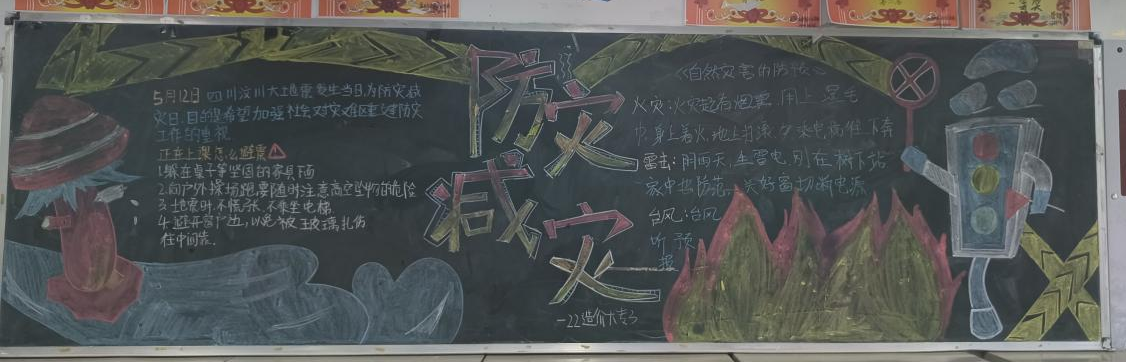 5月12日 四川汶川大地震发生当日,为防灾减
灾日,目的是希望加强社会对灾难区建设防灾
工作的重视
正在上课怎么避震
1.躲在桌子等坚固的家具下面
2.向户外操场跑,要随时注意高空坠物的危险
3.地震时不慌张,不乘坐电梯
4.避开窗户边,以免被玻璃扎伤
往中间靠.
防灾
减灾
一22造价大专3
《自然灾害的防慎》
火灾:火灾起有烟雾,用上湿毛
巾,身上着火,地上打滚
雷击:阴雨天,生雷电,别在树下站
家中也防范,关好窗切断电源
台风:台风
听预
报